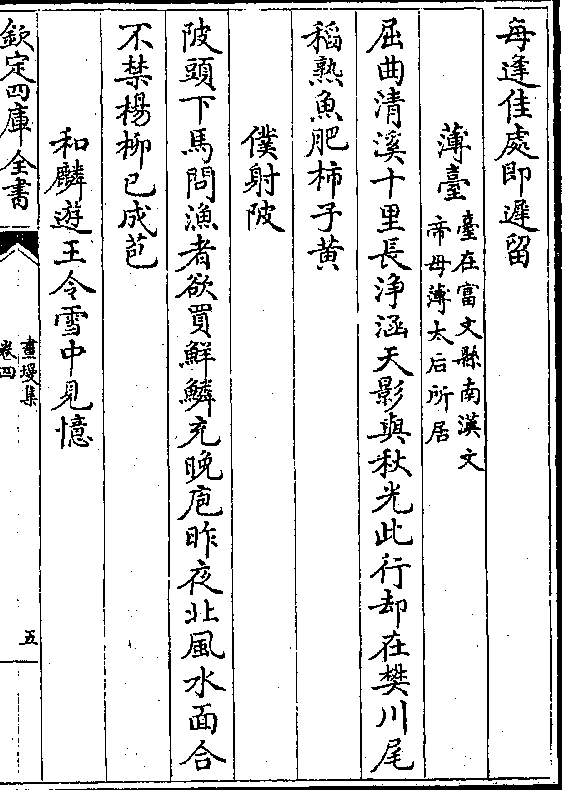 每逢佳處即遲留
薄臺
臺在富文縣南漢文
帝母薄太后所居
屈曲清溪十里長浄涵天影與秋光此行却在樊川尾
稻熟魚肥柿子黄
僕射陂
陂頭下馬問漁者欲買鮮鱗充晩庖昨夜北風水面合
不禁楊柳已成苞
和麟遊王令雪中見憶
欽定四庫全書
畫墁集
卷四
五